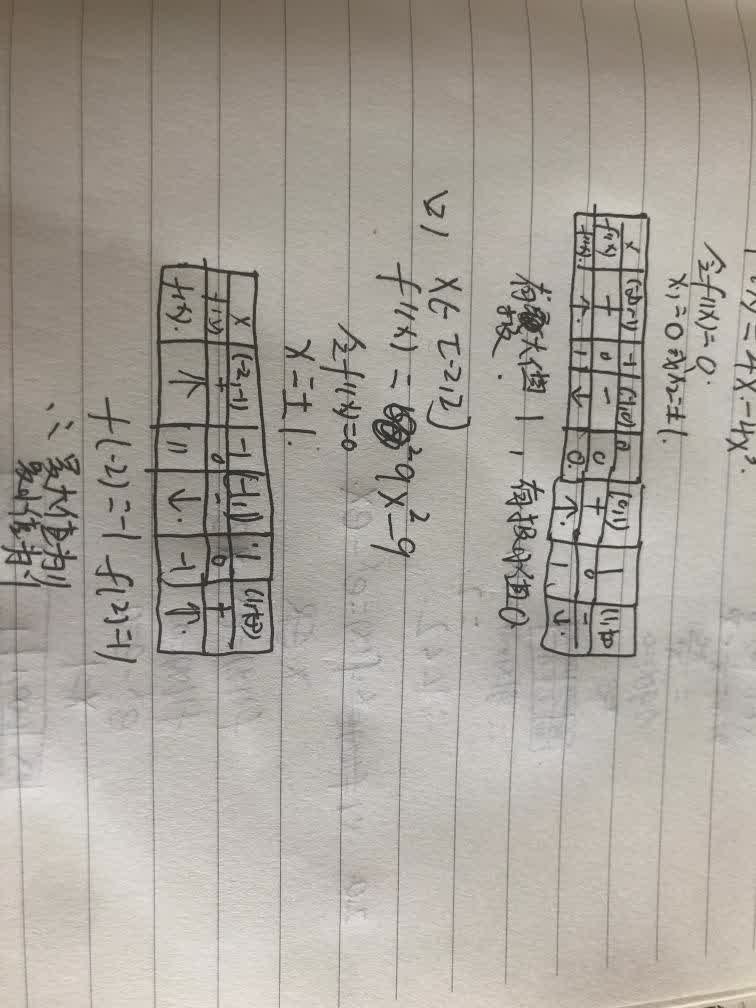 = 4x - 4x³.
令f'(x)=0.
x₁=0 或x₂=±1.
x (-∞,-1) -1 (-1,0) 0 (0,1) 1 (1,+∞)
f'(x) + 0 - 0 + 0 -
f(x). ↑. 1 ↓ 0. ↑. 1. ↓.
有极大值1, 有极小值0
(2) x∈[-2,2]
f'(x) = 9x²-9
令f'(x)=0
x=±1.
x (-2,-1) -1 (-1,1) 1
f'(x) + 0 - 0 +
f(x). ↑ 11 ↓. -1 ↑.
f(-2)=-1 f(2)=11
∴最大值为11
最小值为-1